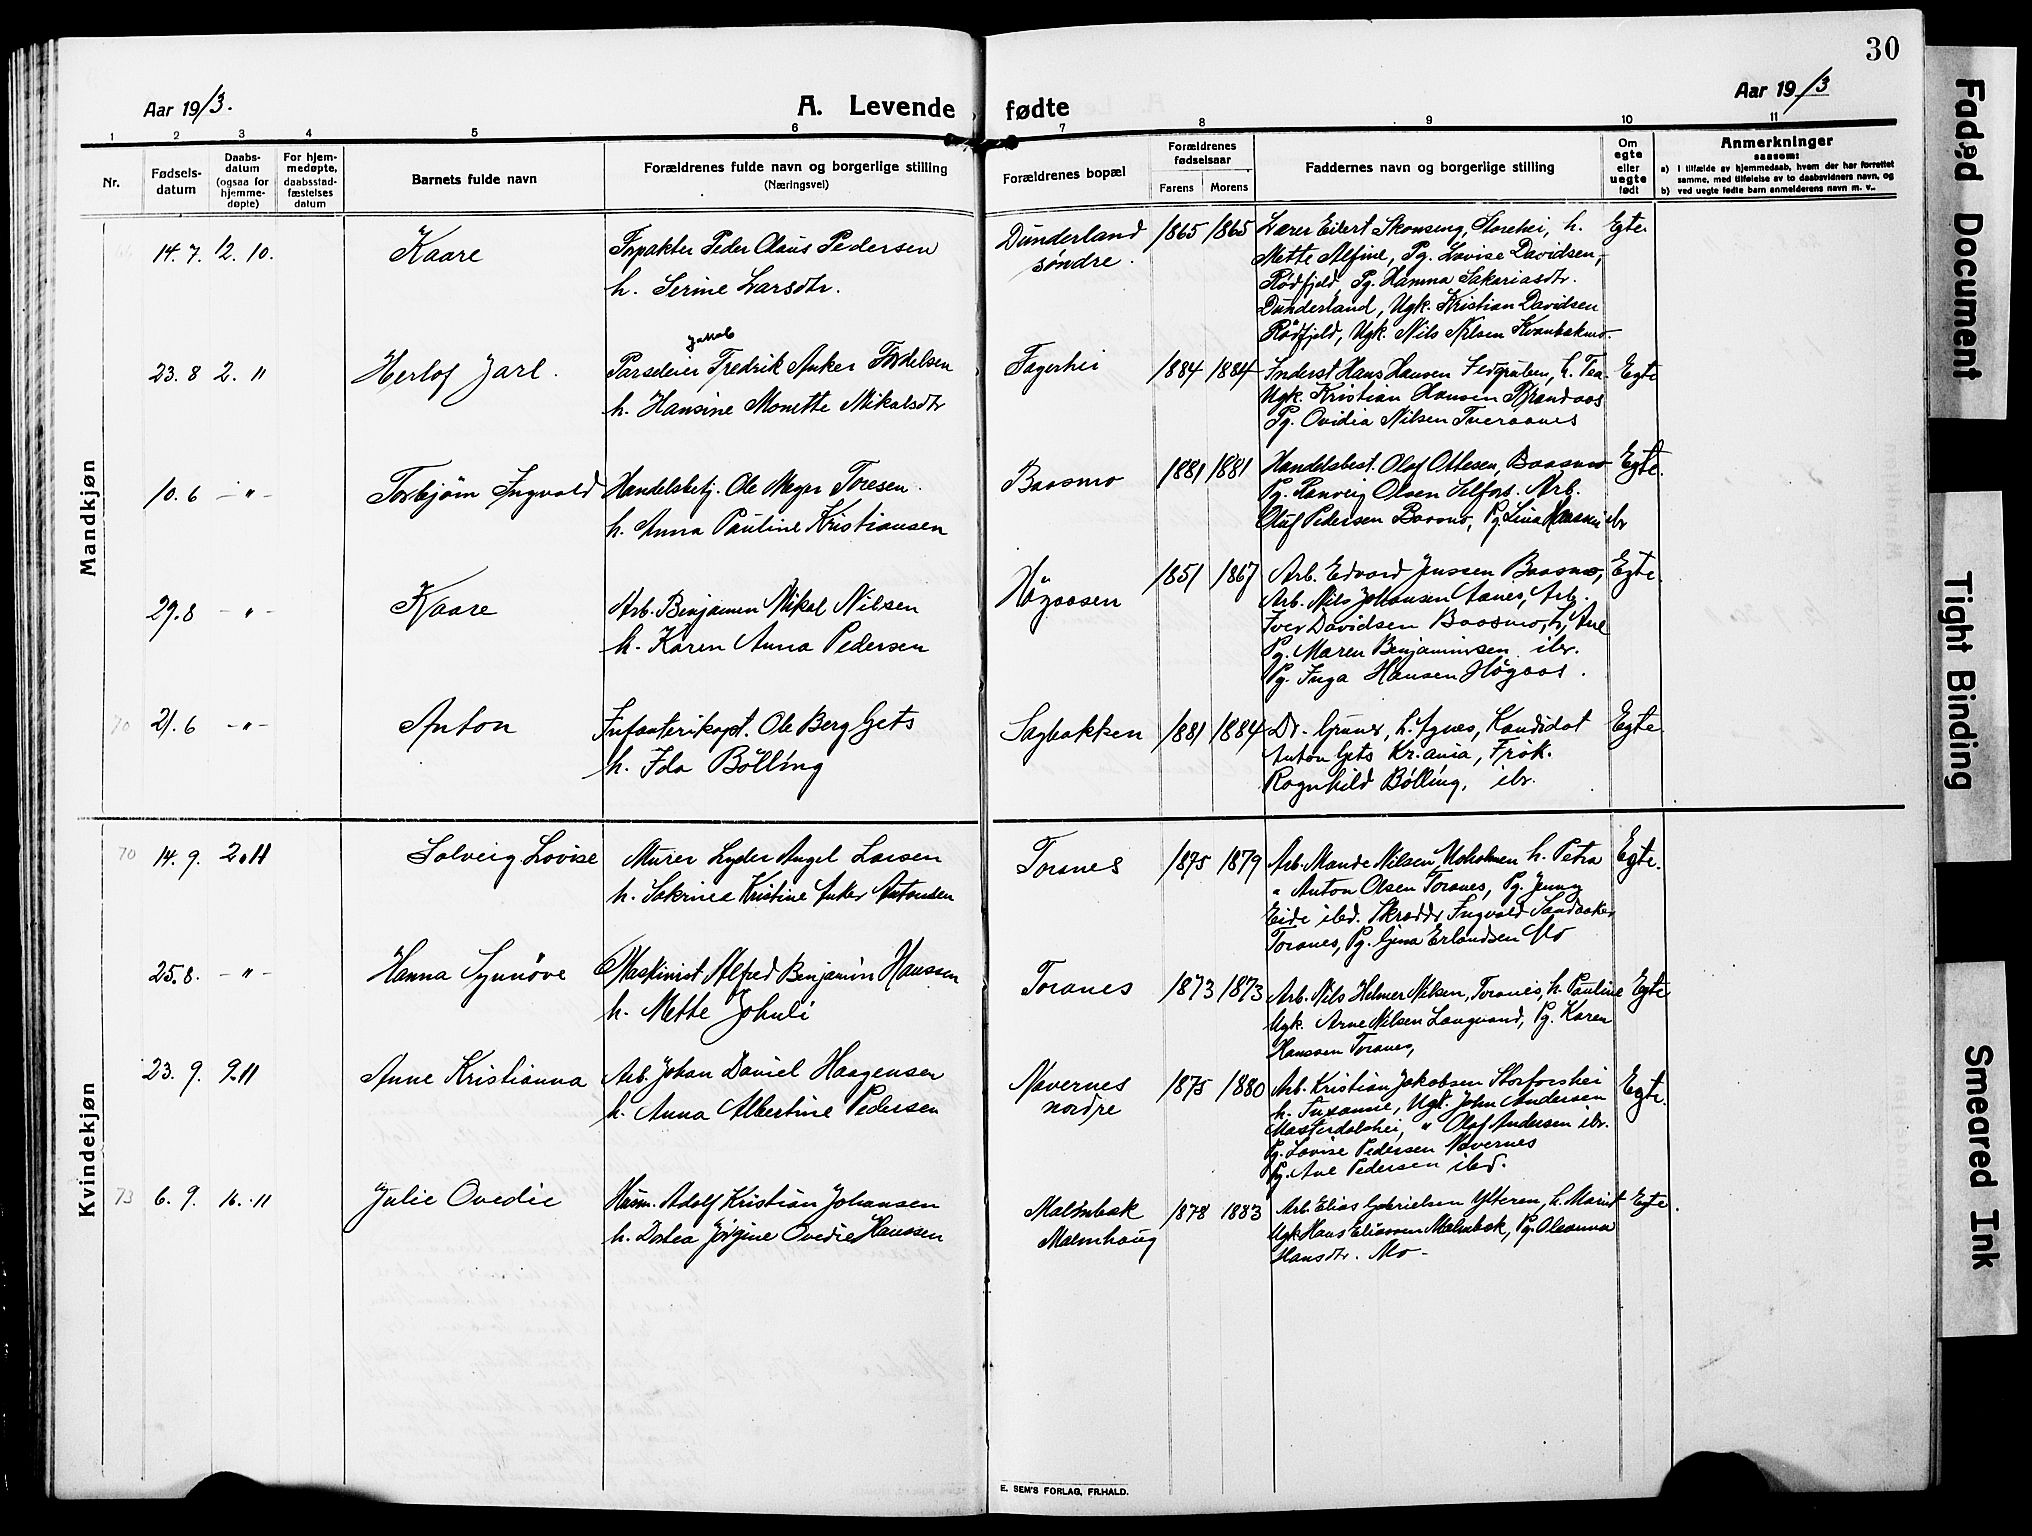 30
Aar 1913.
A. Levende fødte
Aar 1913
1 2 3 4 5 6 7 8 9 10 11
Nr.
Fødsels-
datum
Daabs-
datum
(ogsaa for
hjemme-
døpte)
For hjem-
medøpte,
daabsstad-
fæstelses
datum
Barnets fulde navn
Forældrenes fulde navn og borgerlige stilling
(Næringsvei)
Forældrenes bopæl
Forældrenes
fødselsaar
Farens Morens
Faddernes navn og borgerlige stilling
Om
egte
eller
uegte
født
Anmerkninger
saasom:
a) I tilfælde av hjemmedaab, hvem der har forrettet
samme, med tilføielse av to daabsvidners navn, og
b) ved uegte fødte barn anmelderens navn m. v..
Mandkjøn
14. 7. 12. 10. Kaare
Forpakter Peder Claus Pedersen
h. Serine Larsdtr.
Dunderland
søndre.
1865 1865
Lærer Eilert Skonseng, Storehei, h.
Mette Alfine, Pg. Lovise Davidsen,
Rødfjeld, Pg. Hanna Sakariasdtr.
Dunderland, Ugk. Kristian Davidsen
Rødfjeld, Ugk. Nils Nilsen
Egte.
23. 8 2. 11 Herlof Jarl.
Jakob
Parseleier Fredrik Anker
h. Hansine Monette Mikalsdtr
Fagerhei
1884 1884
Inderst Hans Hansen h. Tea.
Ugk. Kristian Hansen Brandaas
Pg. Ovidia Nilsen Tveraanes
Egte
10. 6 - " - Torbjørn Ingvald
Handelsbetj. Ole Meyer Toresen.
h. Anna Pauline Kristiansen
Baasmo
1881 1881
Handelsbest. Olaf Ottesen, Baasmo
Pg. Ranveig Olsen Selfors. Arb.
Oluf Pedersen Baasmo, Pg. Lina Hansen ibr
Egte.
29. 8 - " - Kaare
Arb. Benjamin Mikal Nilsen
h. Karen Anna Pedersen
Høgaasen
1851 1867
Arb. Edvard Jenssen Baasmo,
Arb. Nils Johansen Aanes, Arb.
Iver Davidsen Baasmo, h. Ane
Pg. Maren Benjaminsen ibr.
Pg. Inga Hansen Høgaas.
Egte.
70 21. 6 - " - Anton
Infanterikapt. Ole Berg Gets
h. Ida Bølling
Sagbakken
1881 1884
Dr. h. Agnes, Kandidat
Anton Gets Kr.ania, Frøk.
Ragnhild Bølling. ibr.
Egte.
Kvindekjøn
70 14. 9. 2. 11 Solveig Lovise
Murer Lyder Angel Larsen
h. Sakrinea Kristine Anker Antonsen
Toranes
1875 1879
Arb. Mande Nilsen, h. Petra
" Anton Olsen Toranes, Pg. Jenny
Eide ibd. Skrædd. Ingvald Sandbakken
Toranes, Pg. Gina Erlandsen Mo
Egte.
25. 8. - " - Hanna Synnøve
Maskinist Alfred Benjamin Hanssen
h. Mette Johnli
Toranes
1873 1873
Arb. Nils Helmer Nilsen, Toranes, h. Pauline
Ugk. Arne Nilsen Langvand, Pg. Karen
Hanssen Toranes,
Egte
23. 9. 9. 11 Anne Kristianna
Arb. Johan Daniel Haagensen
h. Anna Albertine Pedersen
Navernes
nordre
1875 1880
Arb. Kristian Jakobsen Storforshei
h. Susanne, Ugk. John Andersen
" Olaf Andersen ibr.
Pg. Lovise Pedersen Navernes
Pg. Ane Pedersen ibd.
Egte.
73 6. 9. 16. 11 Julie Ovedie
Husm. Adolf Kristian Johansen
h. Dortea Jørgine Ovedie Hanssen
Malmbak
Malmhaug
1878 1883
Arb. Elias Gabrielsen Ytteren, h. Marit
Ugk. Hans Eliassen Malmbak, Pg. Oleanna
Hansdtr. Mo -
Egte.
E. SEM'S FORLAG, FR.HALD.
Faded Document
Tight Binding
Smeared Ink